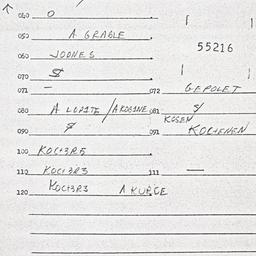 040 0
050 A GRABLE
55216
060 JOONES
070 $
071 — 072 GEPOLET
080 A LOPITE / AKOSINE 081 $/
KOSEN
090 $ 091 KOCHENEN
100 KOCI3RE
110 KOCI3R3 111 —
120 KOCI3R3 A KURCE